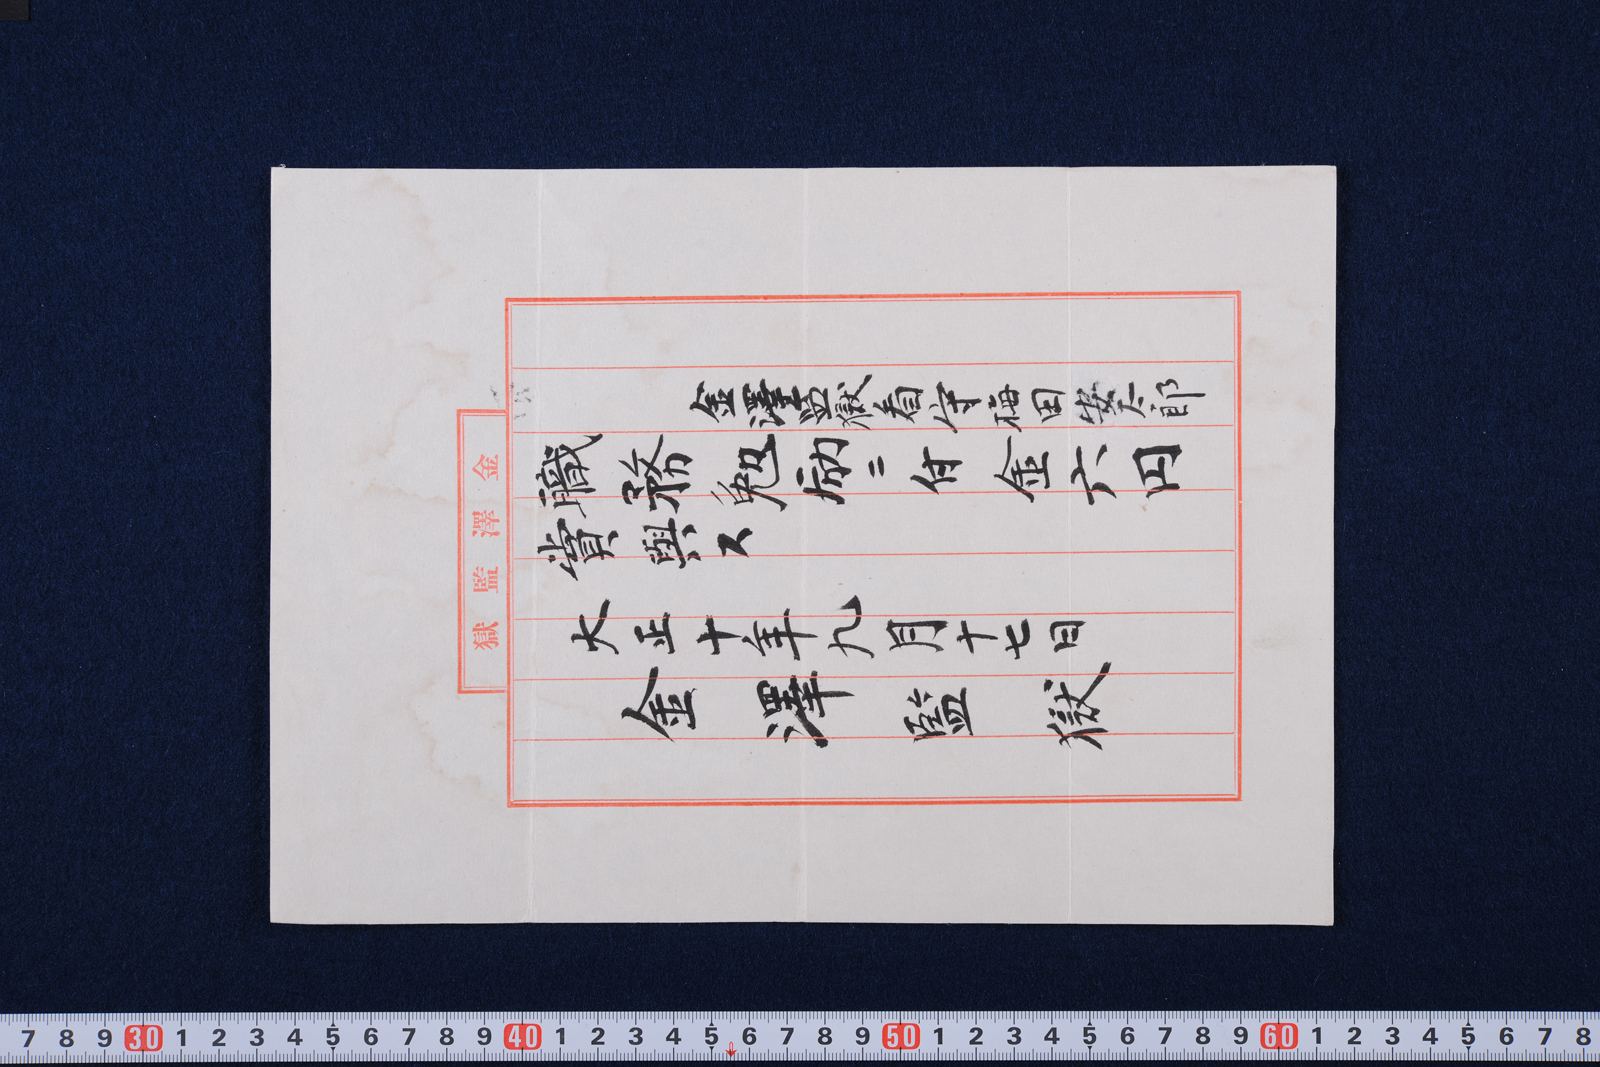 金澤監獄看守梅田安太郎
職務勉励ニ付金六円
賞與ス
大正十年九月十七日
金澤監獄
金澤監獄
7 8 9 30 1 2 3 4 5 6 7 8 9 40 1 2 3 4 5 6 7 8 9 50 1 2 3 4 5 6 7 8 9 60 1 2 3 4 5 6 7 8